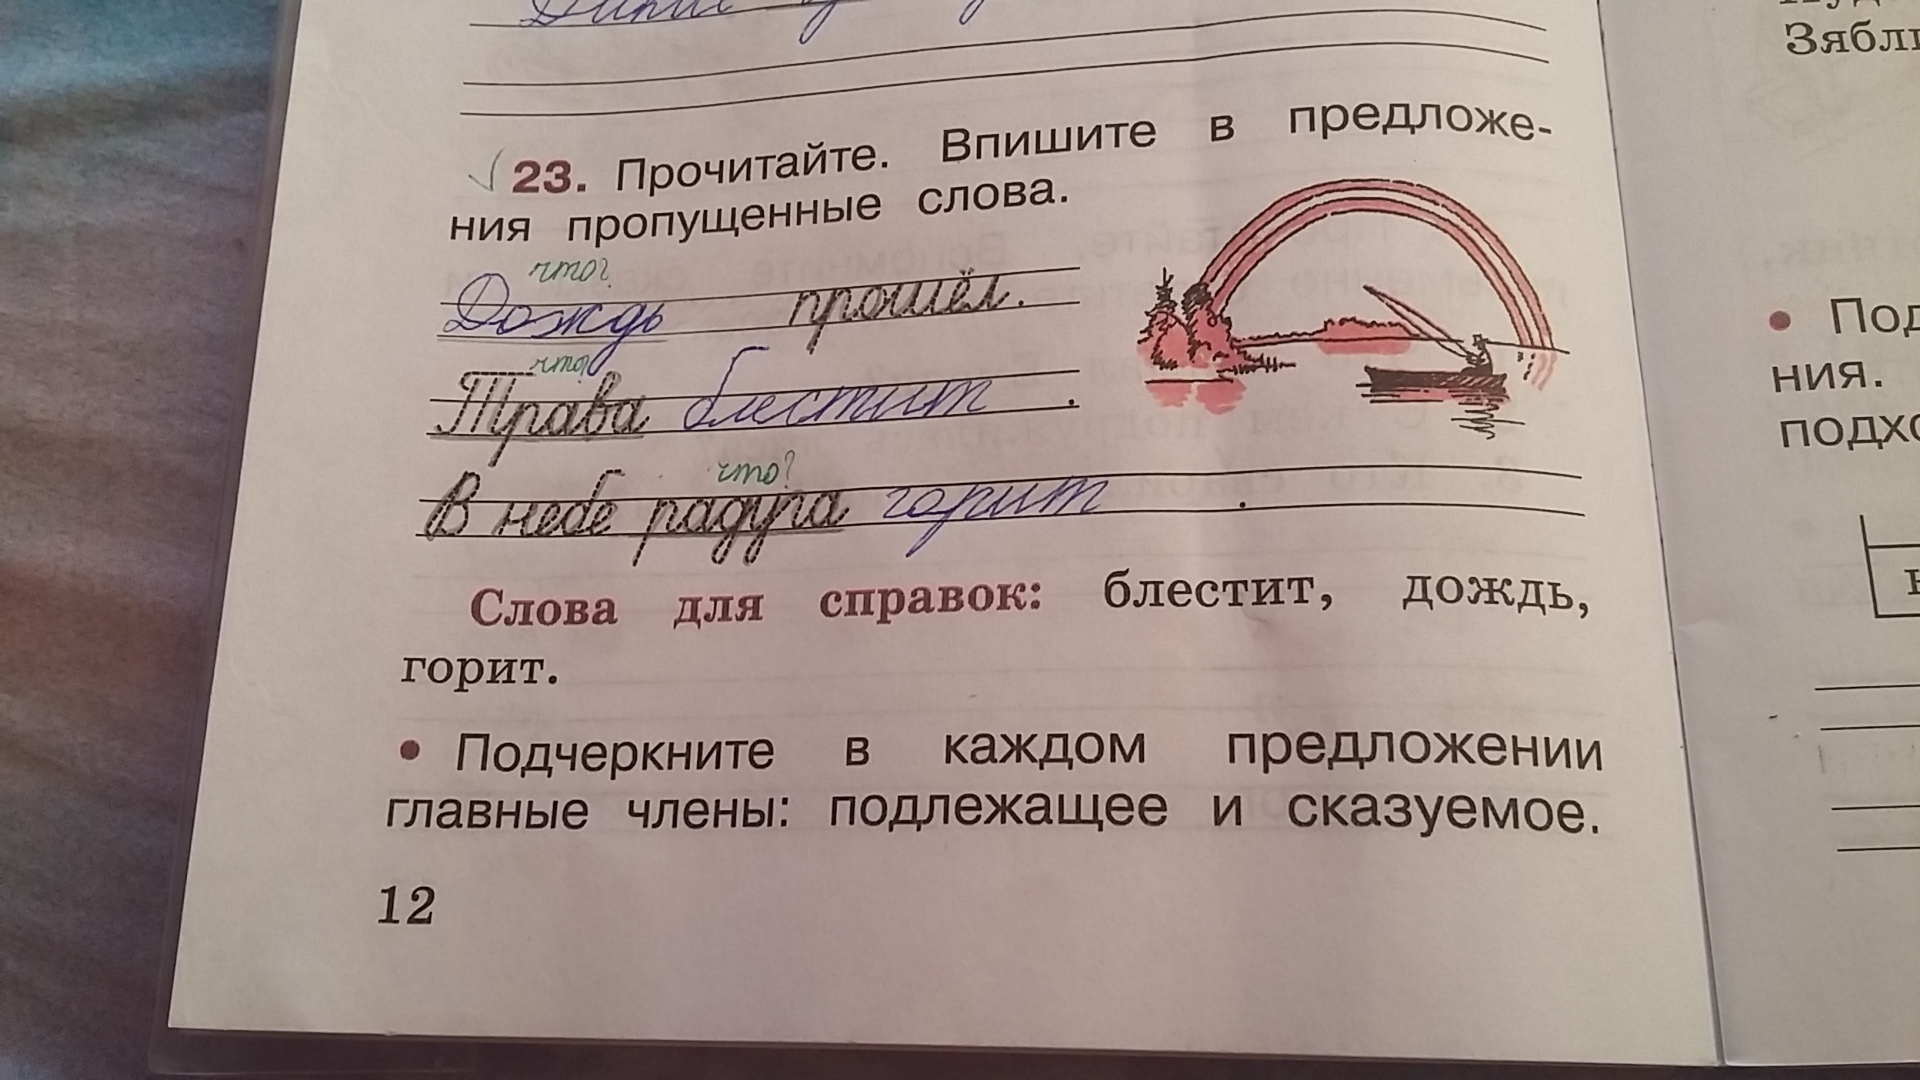 Зябл
23. Прочитайте. Впишите в предложе-
ния пропущенные слова.
что?
Дождь прошёл.
что?
Трава блестит .
что?
В небе радуга горит .
Слова для справок: блестит, дождь,
горит.
• Подчеркните в каждом предложении
главные члены: подлежащее и сказуемое.
12
• Под
ния.
подхо